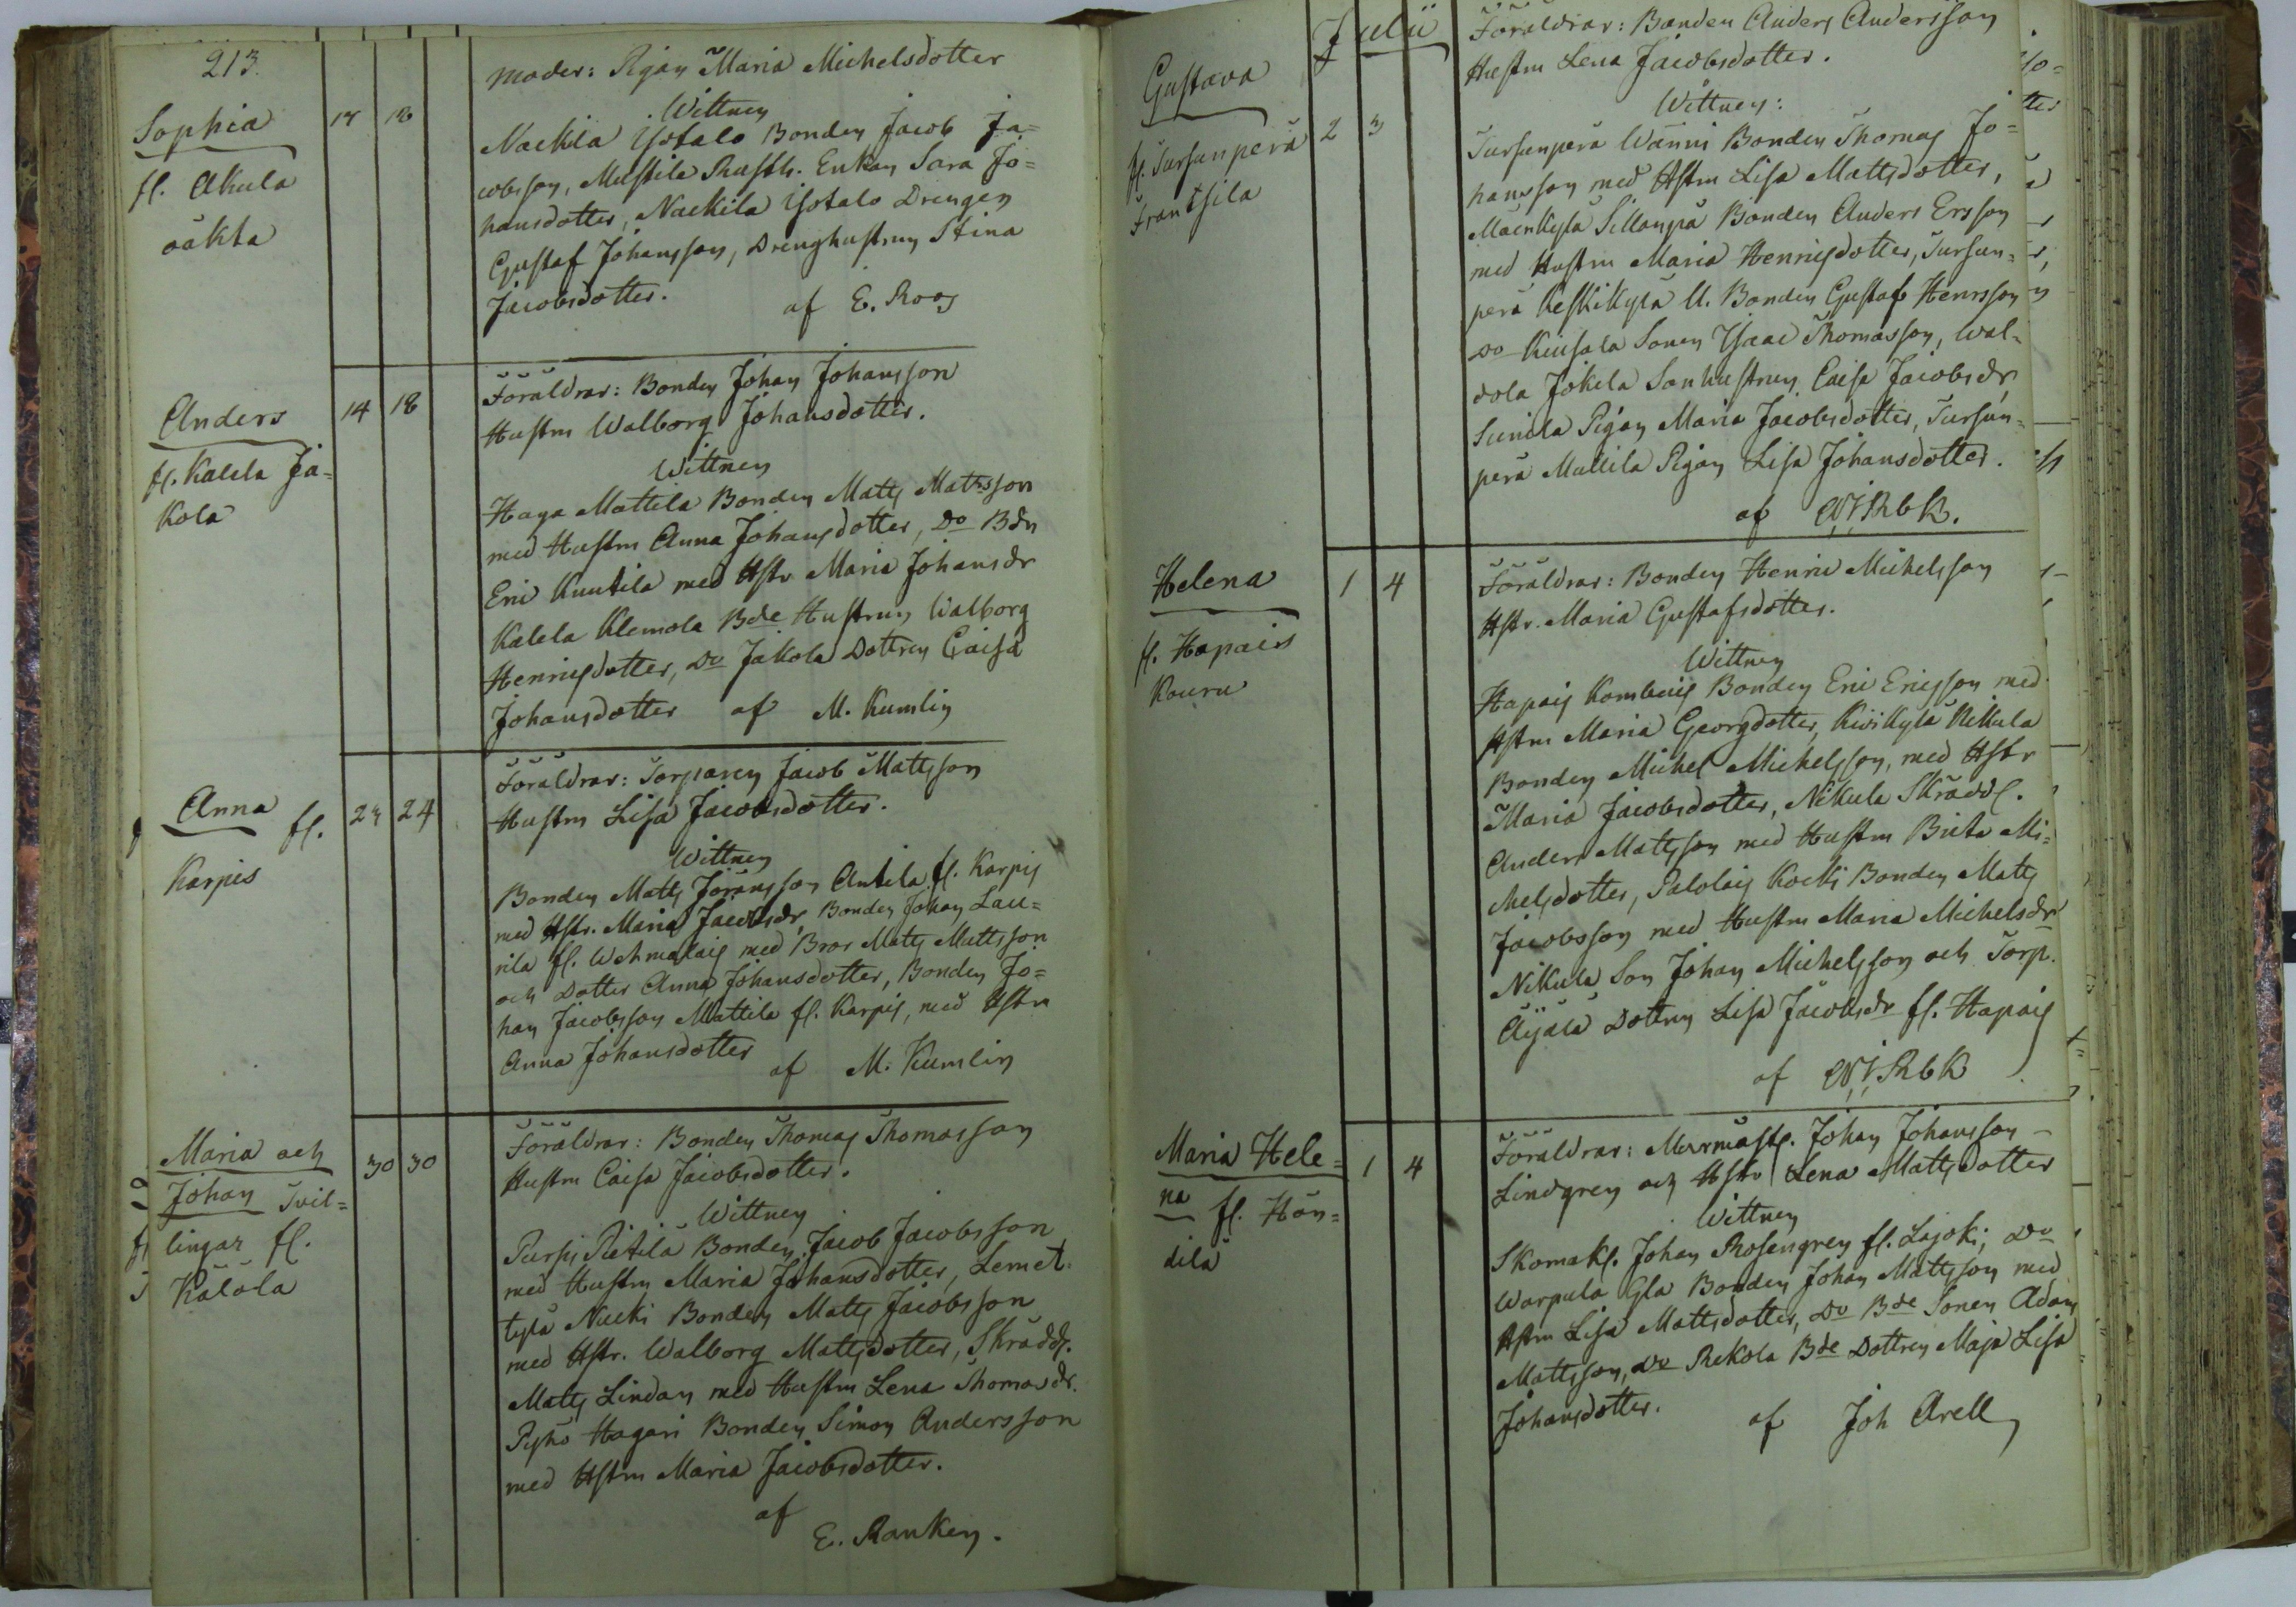 213.
Sophia
fl. Akula
oäkta
17 18
Moder: Pigan Maria Michelsdotter
Wittnen
Naekila Isotalo Bonden Jacob Ja=
cobsson, Mustila Rusth. Enkan Sara Jo=
hansdotter, Naekila Isotalo Drengen
Gustaf Johansson, Drenghustrun Stina
Jacobsdotter. af E. Roos
Anders
fl. Kalela Ja=
kola
14 18
Föräldrar: Bonden Johan Johansson
Hustru Walborg Johansdotter.
Wittnen
Haga Mattila Bonden Matts Mattsson
med Hustru Anna Johansdotter, Do Bdn
Eric Knutila med Hstr Maria Johansdr
Kalela Klemola Bde Hustrun Walborg
Henricsdotter, Do Jakola Dottren Caisa
Johansdotter af M. Kumlin
Anna fl.
Karpis
23 24
Föräldrar: Torparen Jacob Mattsson
Hustru Lisa Jacobsdotter.
Wittnen
Bonden Matts Göransson Antila fl. Karpis
med Hstr. Maria Jacobsdr, Bonden Johan Lau=
rila fl. Wehmalais med Bror Matts Mattsson
och Dotter Anna Johansdotter, Bonden Jo=
han Jacobsson Mattila fl. Karpis, med Hstru
Anna Johansdotter af M. Kumlin
Maria och
Johan Tvil=
lingar fl.
Kälölä
30 30
Föräldrar: Bonden Thomas Thomasson
Hustru Caisa Jacobsdotter.
Wittnen
Pursi Pietilä Bonden Jacob Jacobsson
med Hustru Maria Johansdotter, Lemet=
tylä Nucki Bonden Matts Jacobsson
med Hstr. Walborg Mattsdotter, Skrädd.
Matts Lindan med Hustru Lena Thomasdr.
Pyhö Hagari Bonden Simon Andersson
med Hstru Maria Jacobsdotter.
af
E. Ranken.
Julii
Gustava
fl. Tursunperä
Frantsila
2 3
Föräldrar: Bonden Anders Andersson
Hustru Lena Jacobsdotter.
Wittnen:
Tursunperä Wänni Bonden Thomas Jo=
hansson med Hstru Lisa Mattsdotter,
Mäenkylä Sillanpä Bonden Anders Ersson
med Hustru Maria Henricsdotter, Tursun=
perä Keskikylä U. Bonden Gustaf Henrsson
Do Kiusala Sonen Isaac Thomasson, Wal=
dola Jokela Sonhustrun Caisa Jacobsdr
Sunila Pigan Maria Jacobsdotter, Tursun=
perä Mullila Pigan Lisa Johansdotter.
af WJRbk.
Helena
fl. Hapais
Kouru
1 4
Föräldrar: Bonden Henric Michelsson
Hstr. Maria Gustafsdotter.
Wittnen
Hapais Bonden Eric Ericsson med
Hstru Maria Georgdotter, Kivikylä Nikula
Bonden Michel Michelsson, med Hstr
Maria Jacobsdotter, Nikula Skrädd.
Anders Mattsson med Hustru Brita Mi=
chelsdotter, Palolais Kocki Bonden Matts
Jacobsson med Hustru Maria Michelsdr
Nikula Son Johan Michelsson och Torp.
Äijälä Dottren Lisa Jacobsdr fl. Hapais
af WJRbk
Maria Hele=
na fl. Hön=
dilä
1 4
Föräldrar: Murmäst. Johan Johansson
Lindgren och Hstr Lena Mattsdotter
Wittnen
Skomak. Johan Rosengren fl. Lajoki, Do
Warpula Gla Bonden Johan Mattsson med
Hstru Lisa Mattsdotter, Do Bde Sonen Adam
Mattsson, Do Rekola Bde Dottren Maja Lisa
Johansdotter. af Joh Arell